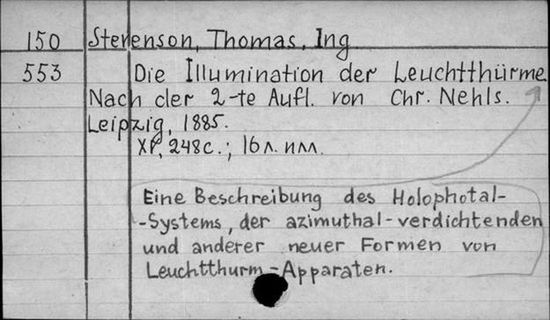 150 Stevenson, Thomas, Ing
553 Die Illumination der Leuchtthürme
Nach der 2-te Aufl. von Chr. Nehls.
Leipzig, 1885.
XII, 248с.; 16л. илл.
Eine Beschreibung des Holophotal-
-Systems, der azimuthal-verdichtenden
und anderer neuer Formen von
Leuchtthurm-Apparaten.